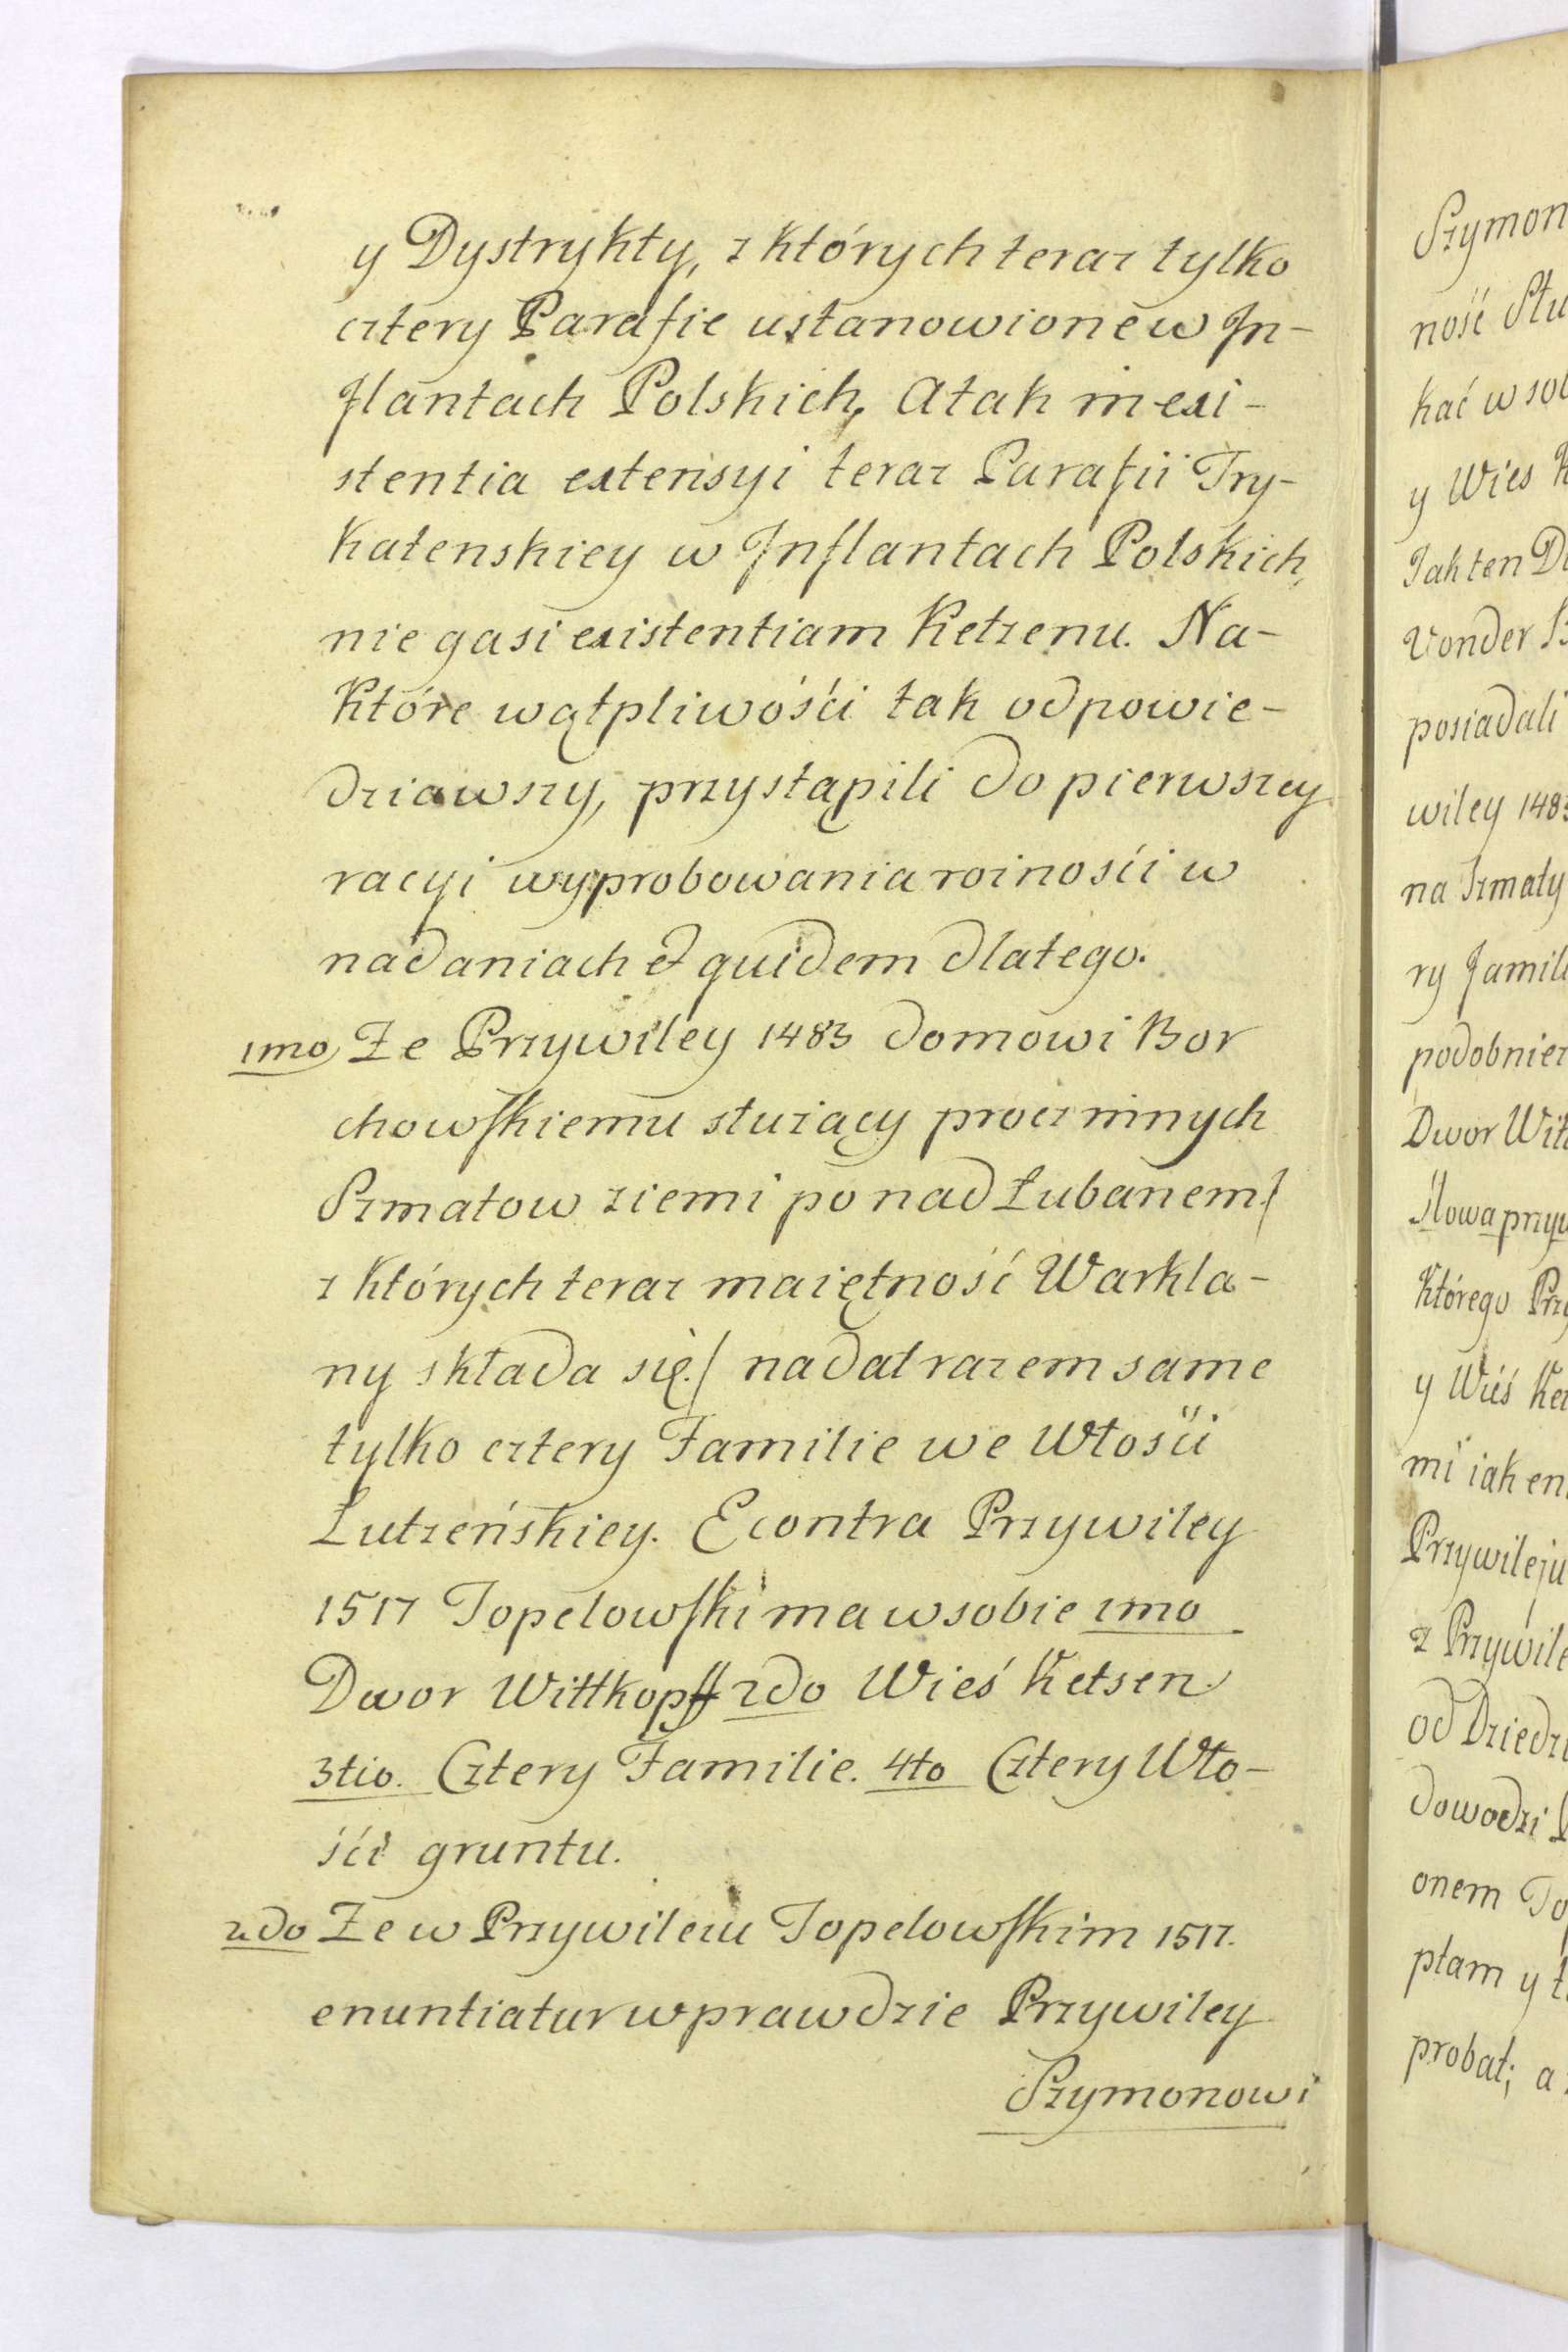 y Dystrykty, z których teraz tylko
cztery Parafie ustanowione w In-
flantach Polskich, A tak inexi-
stentia extensyi teraz Parafii Try-
katenskiey w Inflantach Polskich,
nie gasi existentiam Ketzenu. Na-
które wątpliwośći tak odpowie-
dziawszy, przystąpili do pierwszey
racyi wyprobowania roznośći w
nadaniach et quidem dlatego.
1mo Ze Przywiley 1483 domowi Bor
chowskiemu służący procz innych
Szmatow ziemi ponad Łubanem/
z których teraz maiętność Warkla-
ny składa się./ nadał razem same
tylko cztery Familie we Włośći
Lutzeńskiey. Econtra Przywiley
1517 Topelowski ma w sobie 1mo
Dwor Wittkopff 2do Wieś Ketsen.
3tio. Cztery Familie. 4to Cztery Wło-
śći gruntu.
2do Ze w Przywileiu Topelowskim 1517.
enuntiatur wprawdzie Przywiley
Szymonowi
Szymon
ność Słu
kać w sob
y Wies K
Jak ten D
Vonder B
posiadali
wiley 1483
na Szmaty
ry famili
podobniez
Dwor Wit
Słowa przyw
którego Prz
y Wieś Ket
mi iak en
Przywileju
z Przywile
od Dziedzi
dowodzi
onem To
płam y t
probat; a